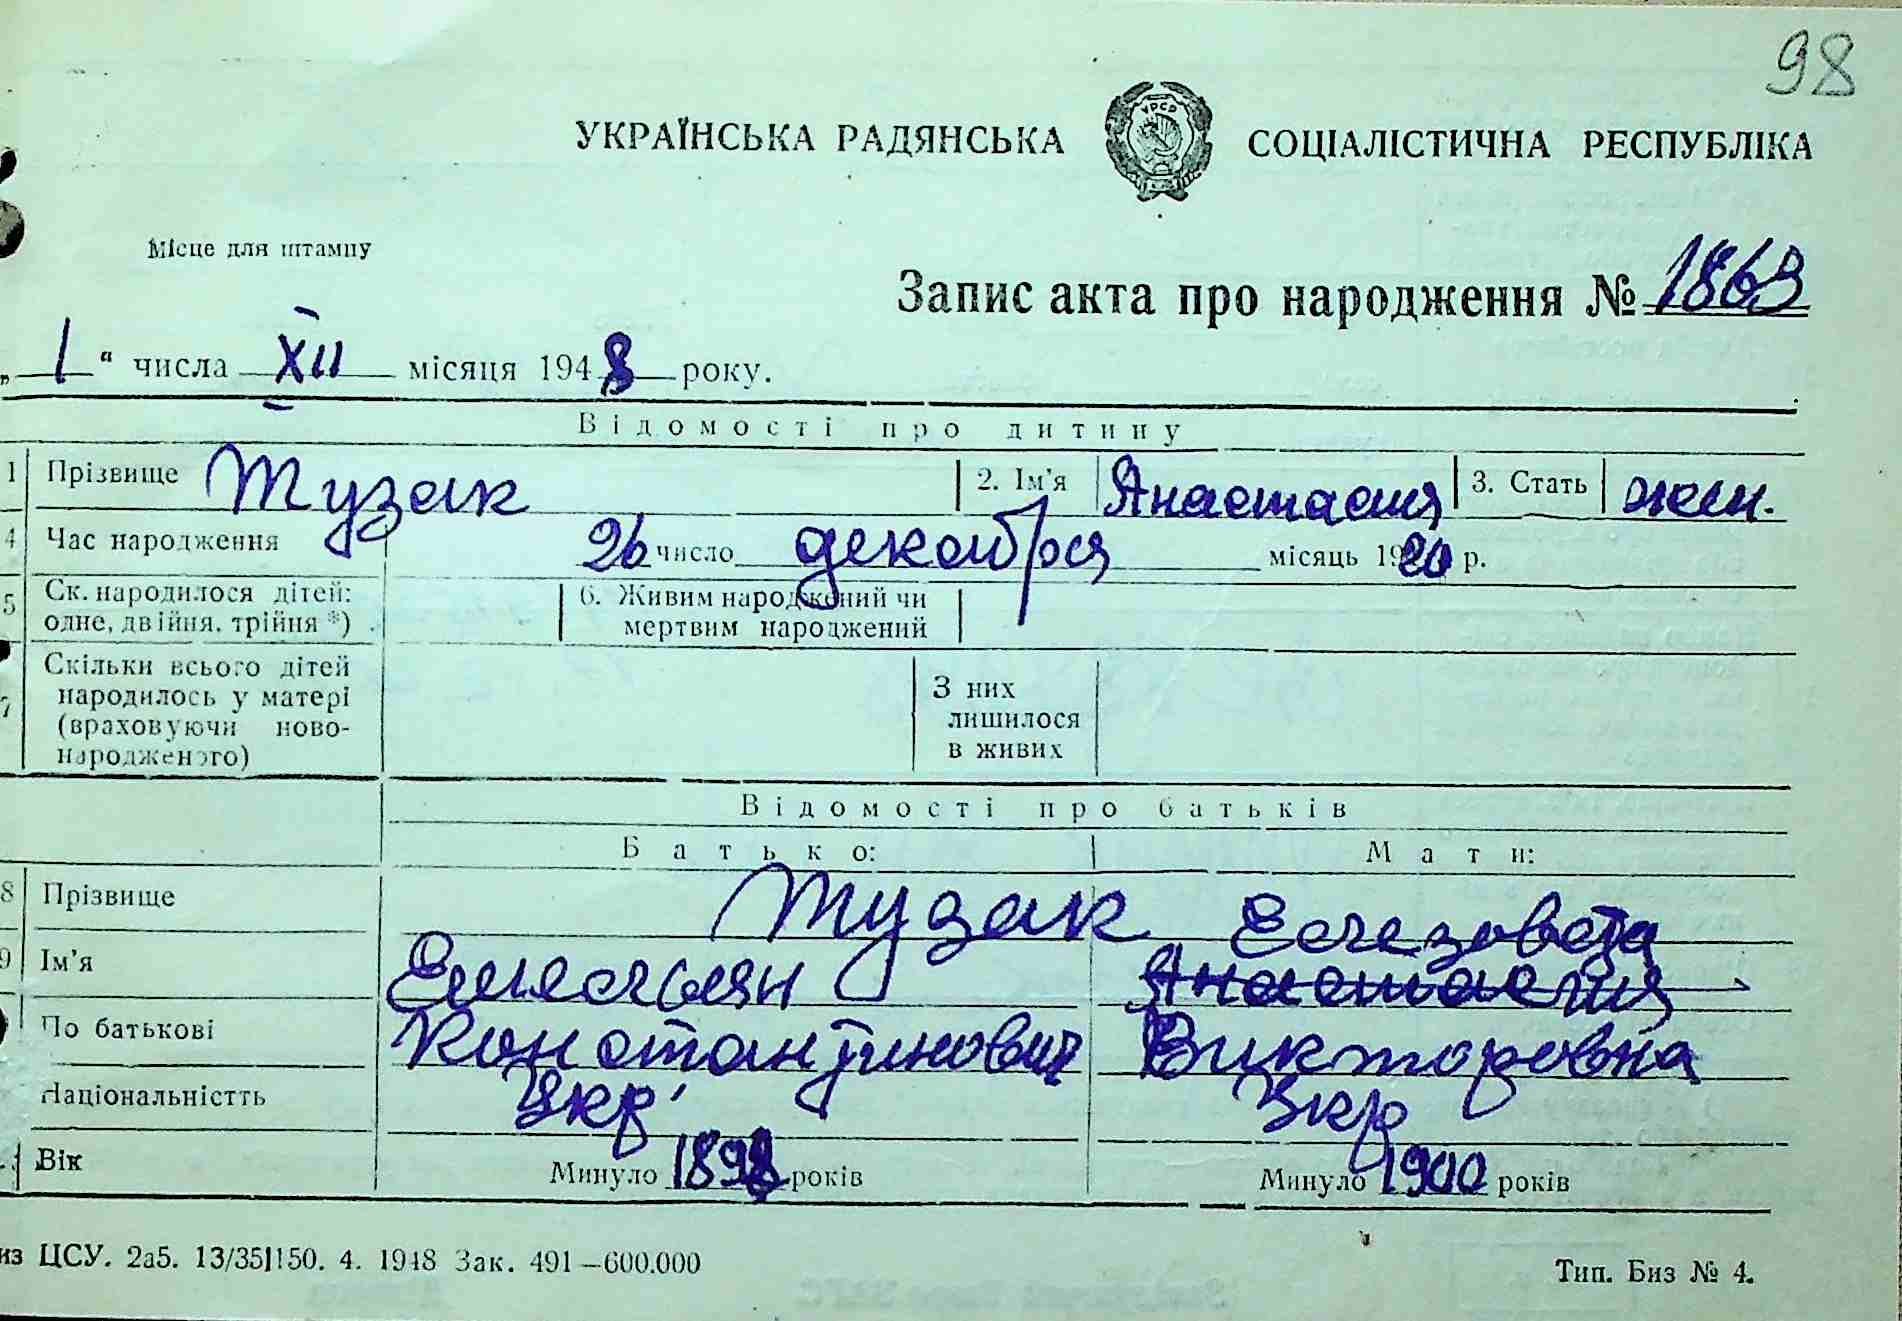 98
УКРАЇНСЬКА РАДЯНСЬКА СОЦІАЛІСТИЧНА РЕСПУБЛІКА
УРСР
Місце для штампу
Запис акта про народження № 1863
„ 1 “ числа XII місяця 1948 року.
Відомості про дитину
1 Прізвище Тузак 2. Ім'я Анастасия 3. Стать жен.
4 Час народження 26 число декабря місяць 1920 р.
5 Ск. народилося дітей: одне, двійня, трійня *) 6. Живим народжений чи мертвим народжений
7 Скільки всього дітей народилось у матері (враховуючи ново-народженого) З них лишилося в живих
Відомості про батьків
Батько: Мати:
8 Прізвище Тузак
Елезовета
9 Ім'я Емельян Анастасия
По батькові Константинович Викторовна
Національністть Укр. Укр
Вік Минуло 1898 років Минуло 1900 років
из ЦСУ. 2а5. 13/35]150. 4. 1948 Зак. 491—600.000 Тип. Биз № 4.